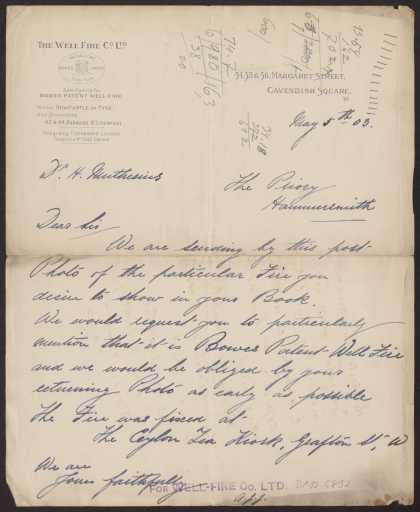 THE WELL FIRE CO. LTD
BOWES PATENT WELL-FIRE
54, 55 & 56, MARGARET STREET,
CAVENDISH SQUARE,
W
May 5th 03.
Dr. H. Muthesius
The Priory
Hammersmith
Dear Sir
We are sending by this post
Photo of the particular Fire you
desire to show in your Book.
We would request you to particularly
mention that it is Bowes Patent Well Fire
and we would be obliged by your
returning Photo as early as possible
The Fire was fixed at
The Ceylon Tea Kiosk, Grafton St. W
We are
Yours faithfully
FOR WELL-FIRE CO. LTD.